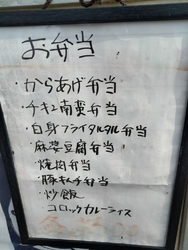 お弁当
・からあげ弁当
・チキン南蛮弁当
・白身フライタルタル弁当
・麻婆豆腐弁当
・焼肉弁当
・豚キムチ弁当
・炒飯
・コロッケカレーライス